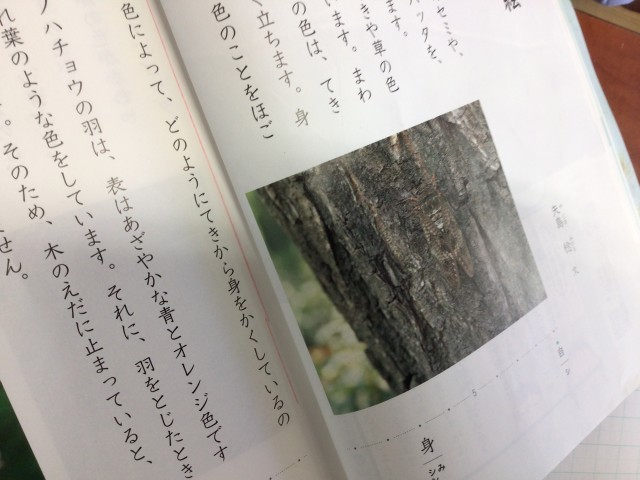 セミや、
バッタを、
ます。
きや草の色
います。まわ
の色は、てき
立ちます。身
色のことをほご
色によって、どのようにてきから身をかくしているの
ノハチョウの羽は、表はあざやかな青とオレンジ色です
れ葉のような色をしています。それに、羽をとじたとき
。そのため、木のえだに止まっていると、
せん。
文
5
身